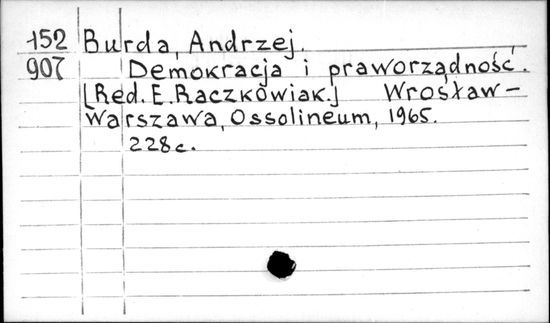 152 Burda, Andrzej.
907 Demokracja i praworządność.
[Red. E. Raczkowiak.] Wrosław-
Warszawa, Ossolineum, 1965.
228 c.